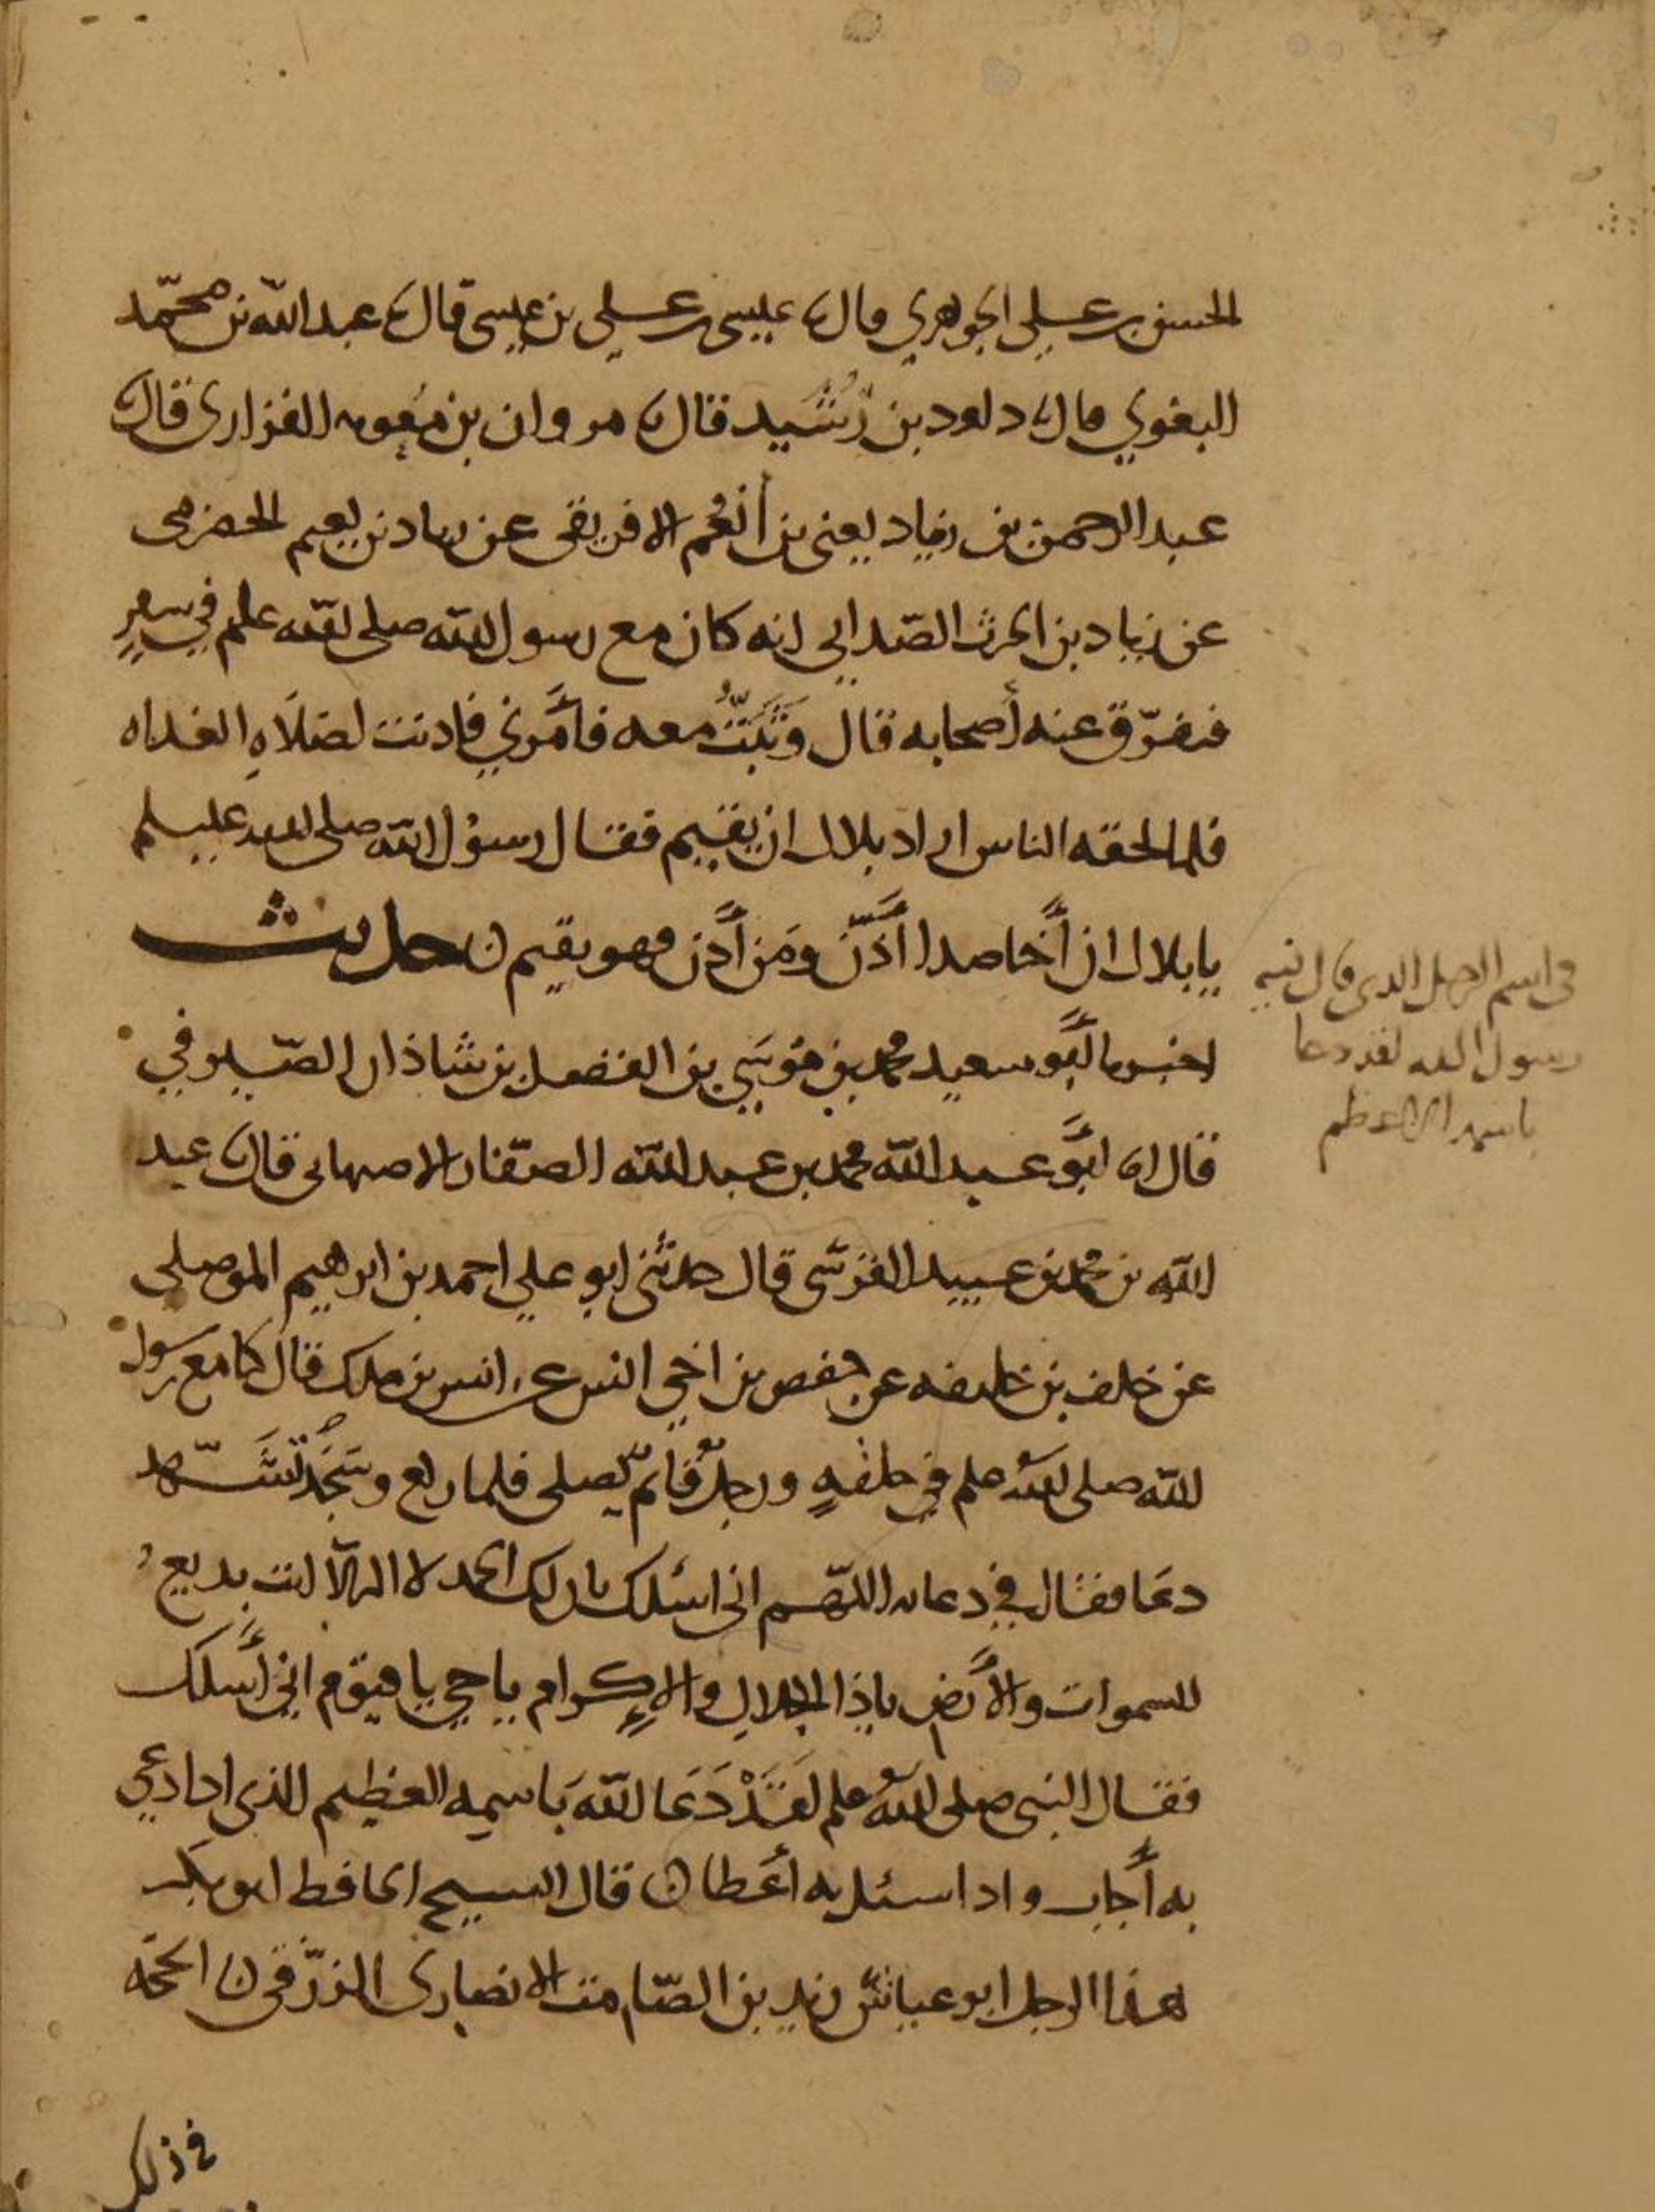 الحسن بن علي الجوهري قال نا عيسى بن علي بن عيسى قال نا عبد الله بن محمّد
البغوي قال نا داود بن رُشَيد قال نا مروان بن مُعوية الفزاري قال نا
عبد الرحمن بن زياد يعني بن أنعُم الافريقى عن زياد بن نعيم الحضرمى
عن زياد بن الحرث الصّدايي انه كان مع رسول الله صلى الله علم في سفرٍ
فتفرّق عنه أصحابه قال وَثَبَتُّ معه فأمَرني فاذنت لصَلَاةِ الغداه
فلما لحقه الناس اراد بلال ان يقيم فقال رسوُل الله صلى الله عليسلم
يا بلال ان أخا صدا أَذَّن ومَن أَذن فهو يقيم ن حديث
اخبرنا أبو سعيد محمد بن مُوسَي بن الفضل بن شاذان الصّيرفي
قال انا أبو عبد الله محمد بن عبد الله الصّفار الاصبهانى قال نا عبد
الله بن محمد بن عبيد القرشى قال حدثنى ابو علي احمد بن ابرهيم الموصلى
عن خلف بن خليفه عن حفص بن اخي انس عن انس بن ملك قال كنا مع رسول
الله صلى الله علم في حلقهٍ ورجلٌ قائمٌ يصلى فلما ركع وسَجَد تَشَهّد
دعَا فقال في دعائه اللهم انى اسئلك بان لك الحمد لا اله الّا انت بديعُ
السموات والأرض ياذا الجلالِ والإكرام يا حي يا قيّوم اني أسلك
فقال النبى صلى اللهُ علم لَقَدْ دَعَا اللهَ باسمِهِ العظيم الذى اذا دعي
به أجاب واذا سئل به أعطا ن قال الشيخ الحافظ ابو بكر
هذا الرجل ابو عياش زيد بن الصّامت الانصارى الزرّقى ن الحجّة
في ذلك
فى اسم الرجل الدى قال فيه
رسول الله لقد دعا
باسمه الاعظم